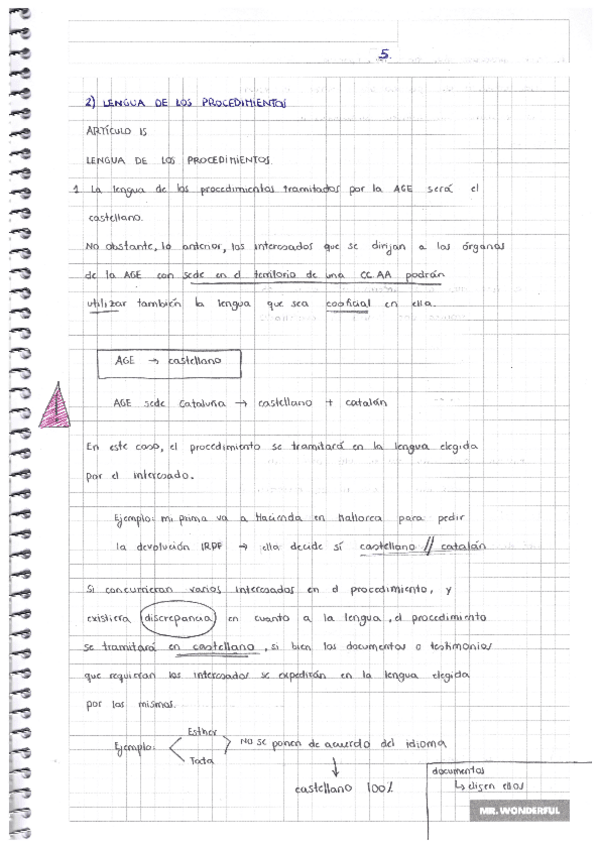 5.
2) LENGUA DE LOS PROCEDIMIENTOS
ARTÍCULO 15
LENGUA DE LOS PROCEDIMIENTOS.
1 La lengua de los procedimientos tramitados por la AGE será el
castellano.
No obstante, lo anterior, los interesados que se dirijan a los órganos
de la AGE con sede en el territorio de una CC.AA podrán
utilizar también la lengua que sea cooficial en ella.
AGE → castellano
!
AGE sede Cataluña → castellano + catalán
En este caso, el procedimiento se tramitará en la lengua elegida
por el interesado.
Ejemplo: mi prima va a Hacienda en Mallorca para pedir
la devolución IRPF → ella decide sí castellano // catalán
Si concurrieran varios interesados en el procedimiento, y
existiera discrepancia en cuanto a la lengua, el procedimiento
se tramitará en castellano, si bien los documentos o testimonios
que requieran los interesados se expedirán en la lengua elegida
por los mismos.
Ejemplo: Esther
No se ponen de acuerdo del idioma
castellano 100%
documentos
↳ dicen ellos
MR. WONDERFUL